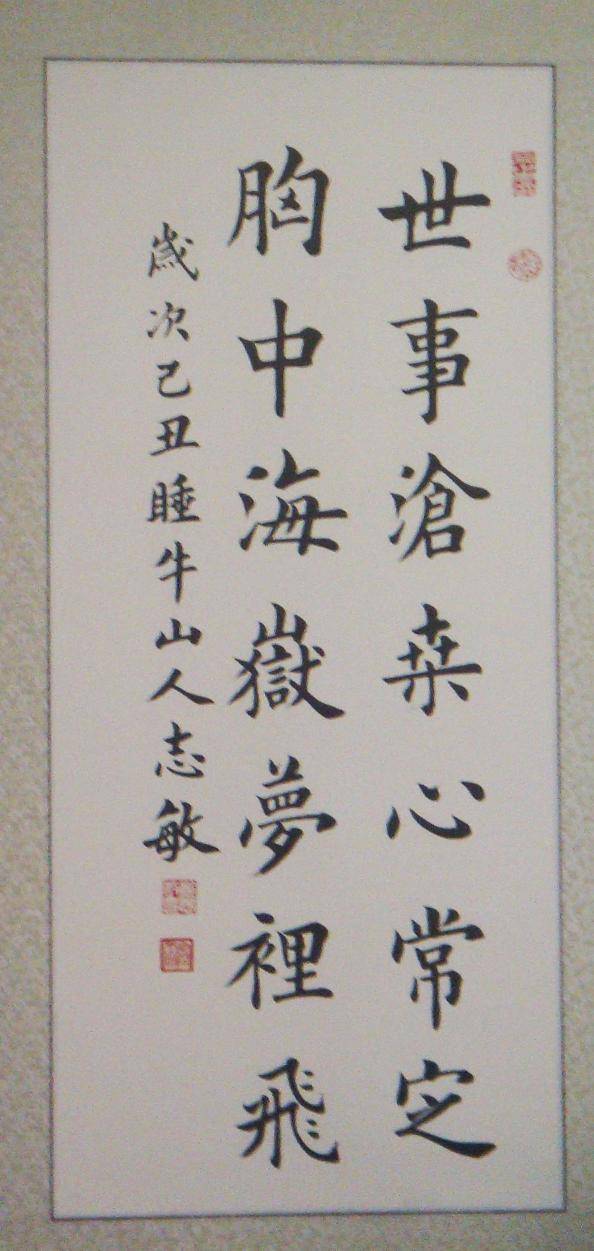 世事滄桒心常定
胸中海嶽夢裡飛
歲次己丑睡牛山人志敏